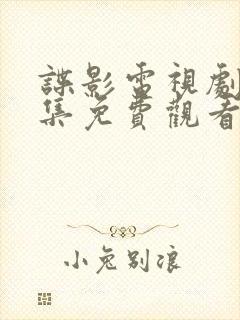 諜影雷視劇
集免費觀看
小兔別浪